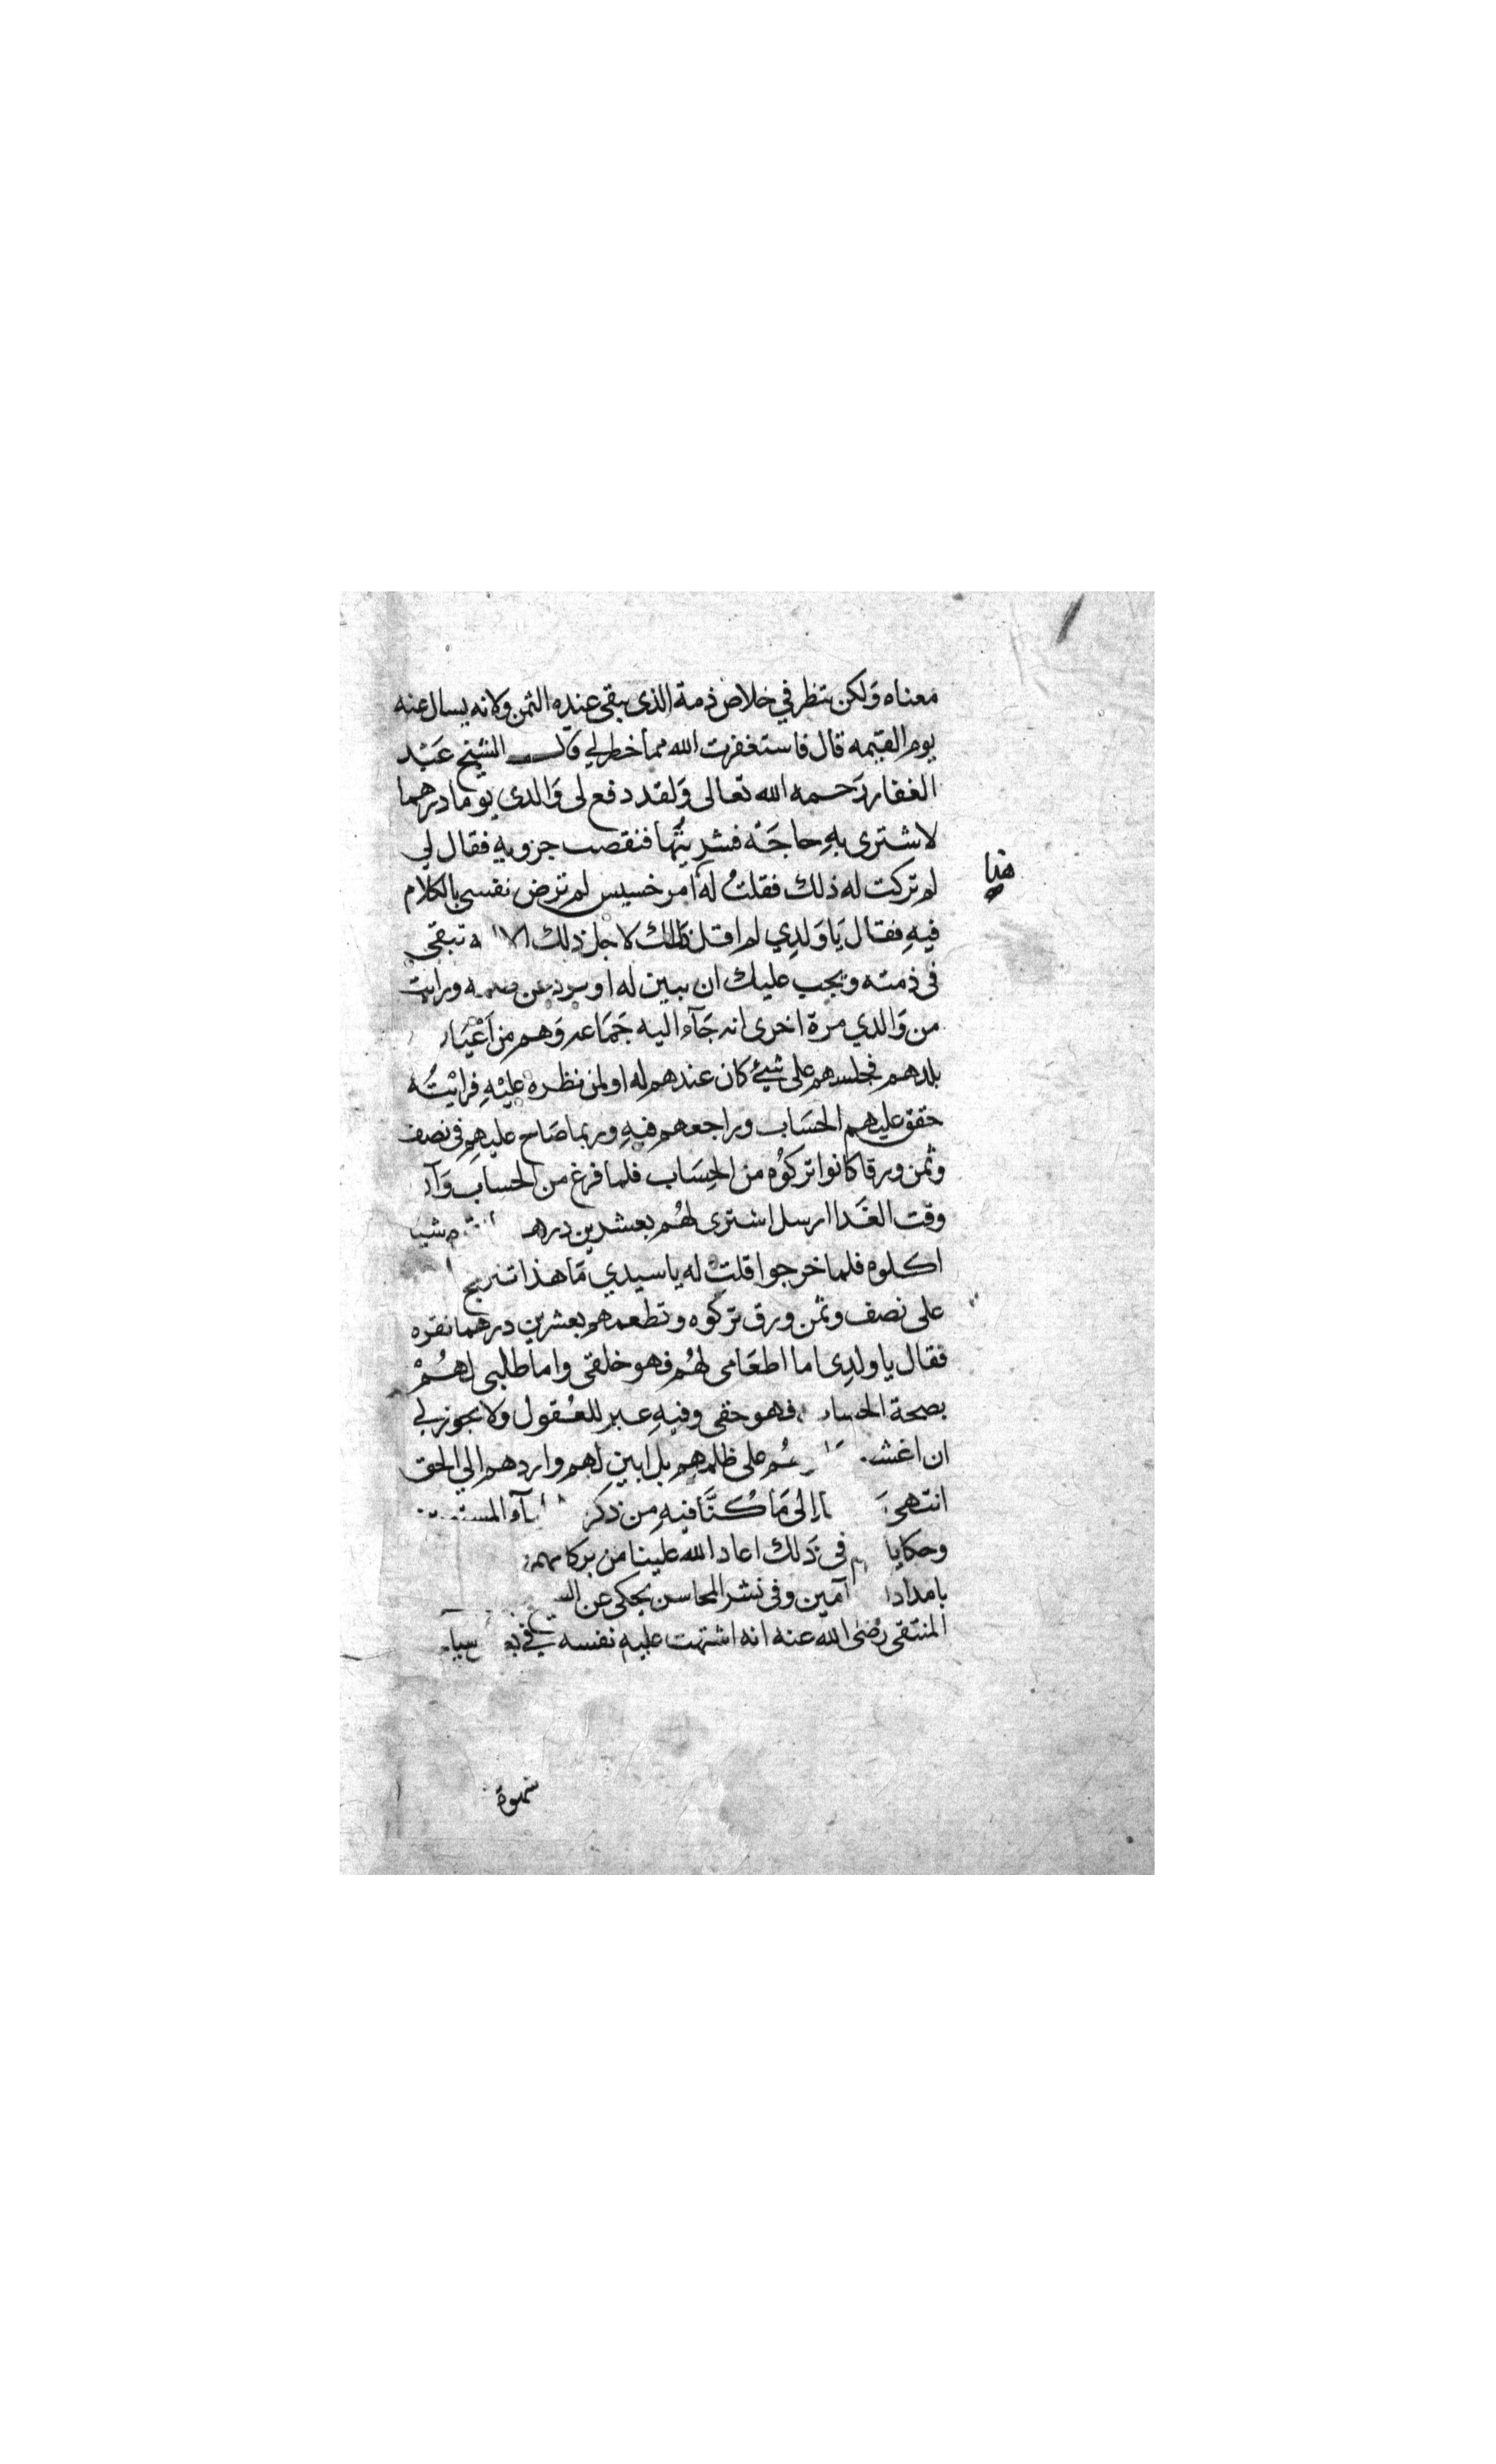 معناه وَلكن تنظر في خلاص ذمة الذى يبقى عنده الثمن ولانه يسال عنه
يوم القيمه قال فاستغفرت الله مما خطر لي قال الشيخ عَبْد
الغفار رَحمه الله تعالى وَلقد دفع لى وَالدى يوما درهما
لاشترى بهِ حاجَة فشريتُها فنقصت جزويهِ فقال لي
لم تركت له ذلك فقلتُ له امر خسيس لم ترض نفسى بالكلام
هنا
فيهِ فقال يَا وَلدِي لم اقل ذلك لاجل ذلك تبقى
فى ذمته ويجب عليك ان تبين له او ورايت
من وَالدي مرة اخرى انه جَآء اليه جَمَاعه وَهم من اَعْيَان
بلدهم فجلسهم على شيئ كان عندهم له اولمن نظره عليْهِ فرايْتُه
حقق عليهم الحسَاب وراجعهم فيهِ وربما صَاح عليهم فى نصف
وثمن ورقا كانوا تركوُه من الحِسَاب فلما فرغ من الحساب وَآن
وقت الغَدا ارسل اشترى لهُم بعشرين شيا
اكلوه فلما خرجوا قلت له يا سيدي مَا هذا
على نصف وثمن ورق تركوه وتطعمهم بعشرين درهما نقره
فقال يا ولدِى اما اطعَامى لهُم فهو خلقى واما طلبى لهُمْ
بصحة الحساب فهو حقى وفيهِ عبر للعُقول ولا يجوز لي
ان على ظلمهم بل ابين لهم واردهم الي الحق
انتهى إلى مَا كُنَّا فيهِ من ذكر
وحكايا فى ذَلك اعاد الله علينا من بركاتهم
آمين وفى نشر المحاسن يحكى عن
المنتقى رضى الله عنه انه اشتهت عليهِ نفسه في
شهوة